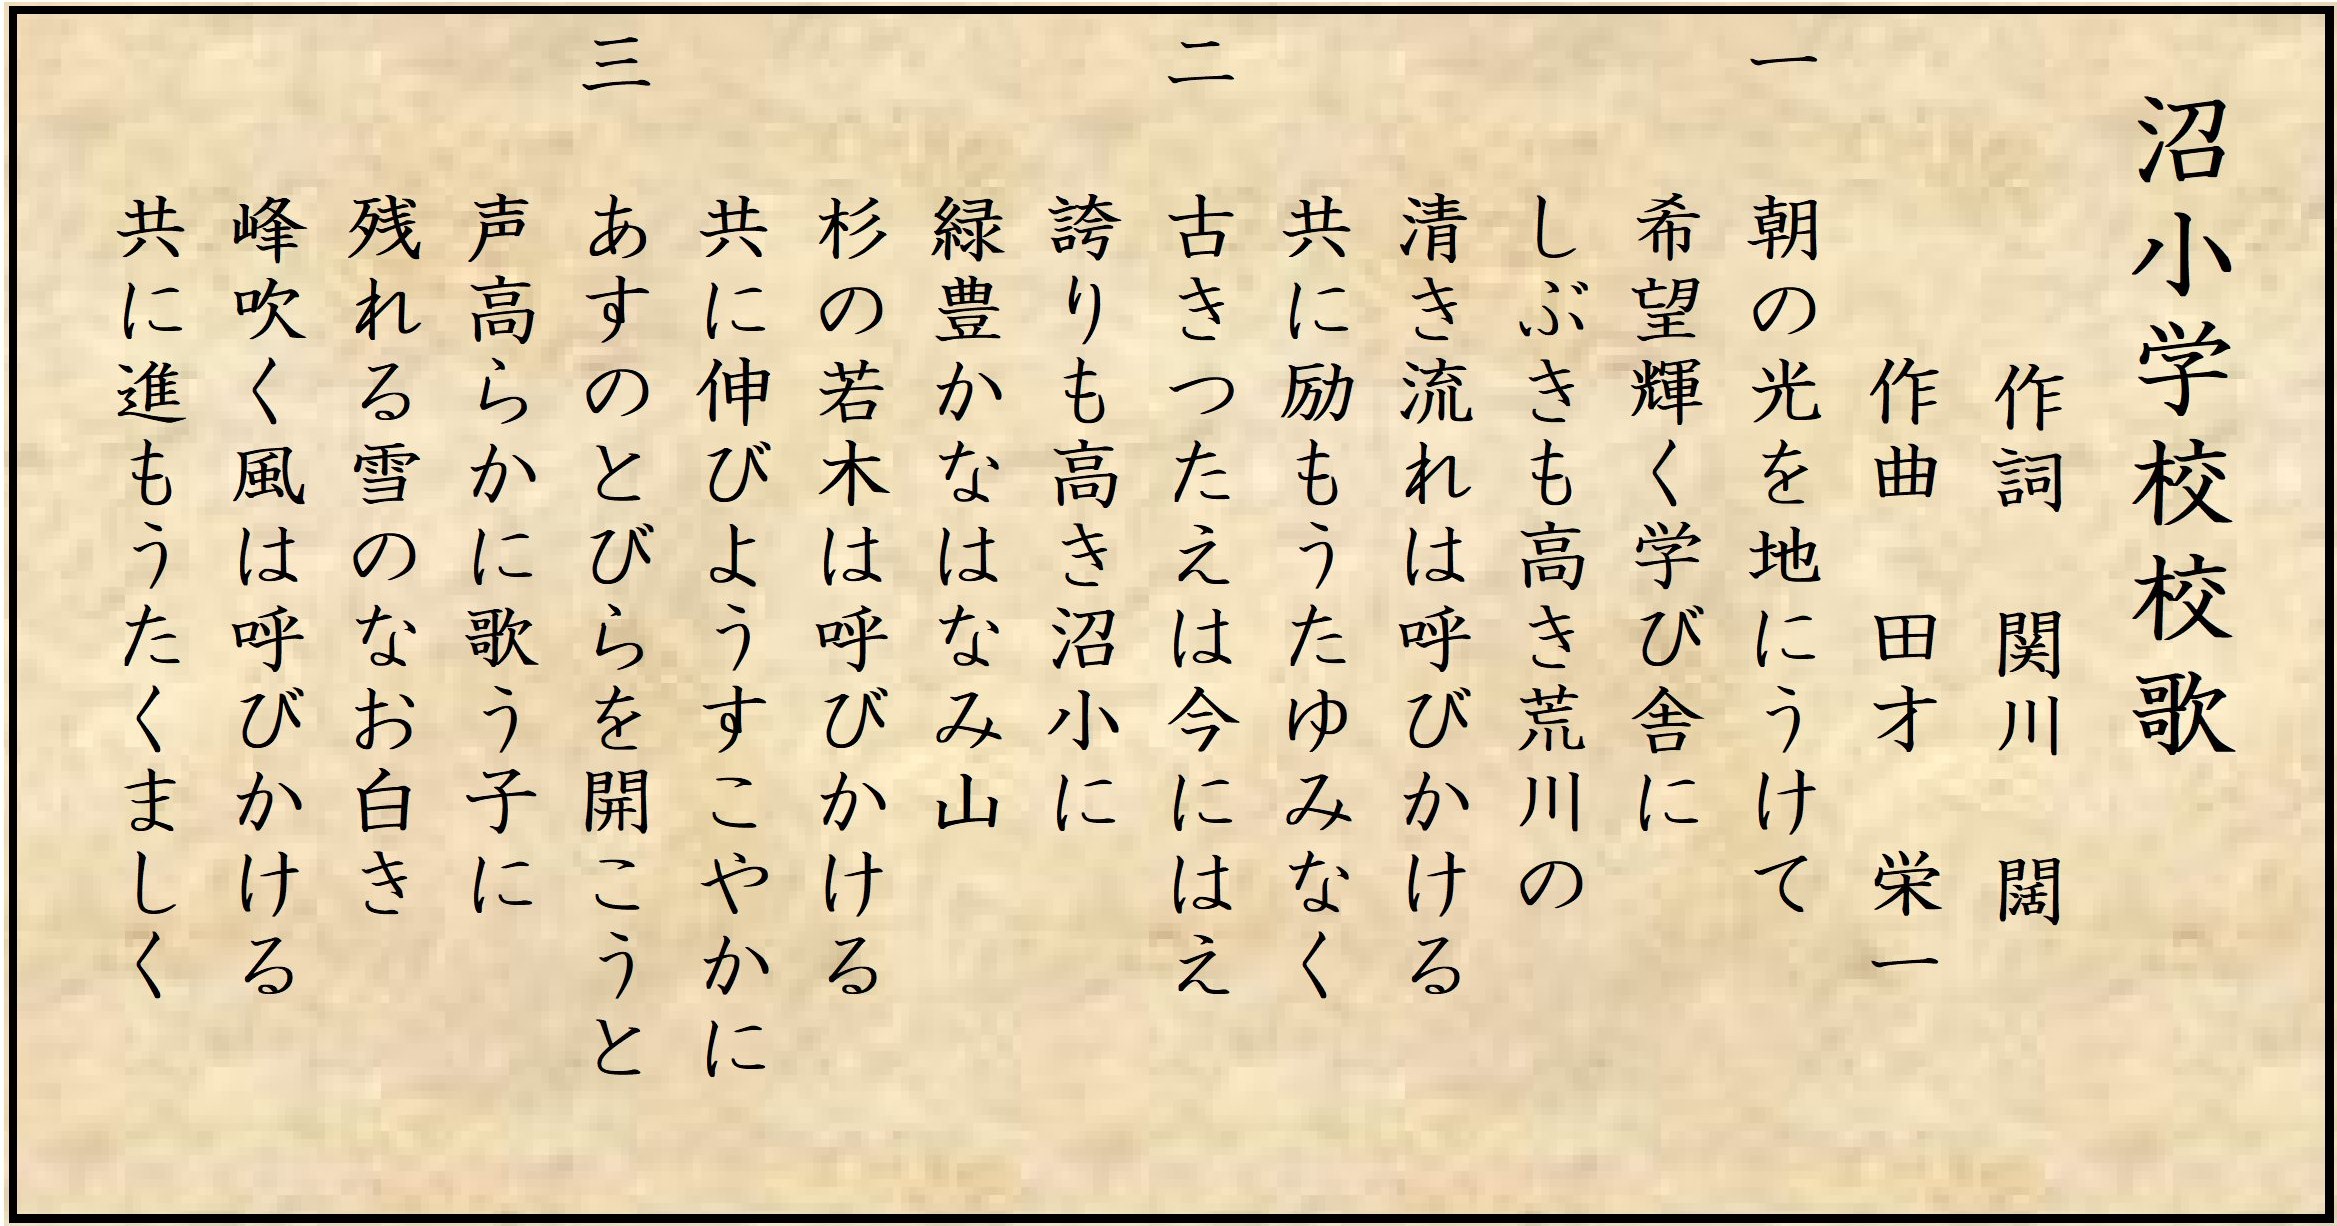 沼小学校校歌
作詞 関川 闊
作曲 田才 栄一
一 朝の光を地にうけて
希望輝く学び舎に
しぶきも高き荒川の
清き流れは呼びかける
共に励もうたゆみなく
二 古きつたえは今にはえ
誇りも高き沼小に
緑豊かなはなみ山
杉の若木は呼びかける
共に伸びようすこやかに
三 あすのとびらを開こうと
声高らかに歌う子に
残れる雪のなお白き
峰吹く風は呼びかける
共に進もうたくましく